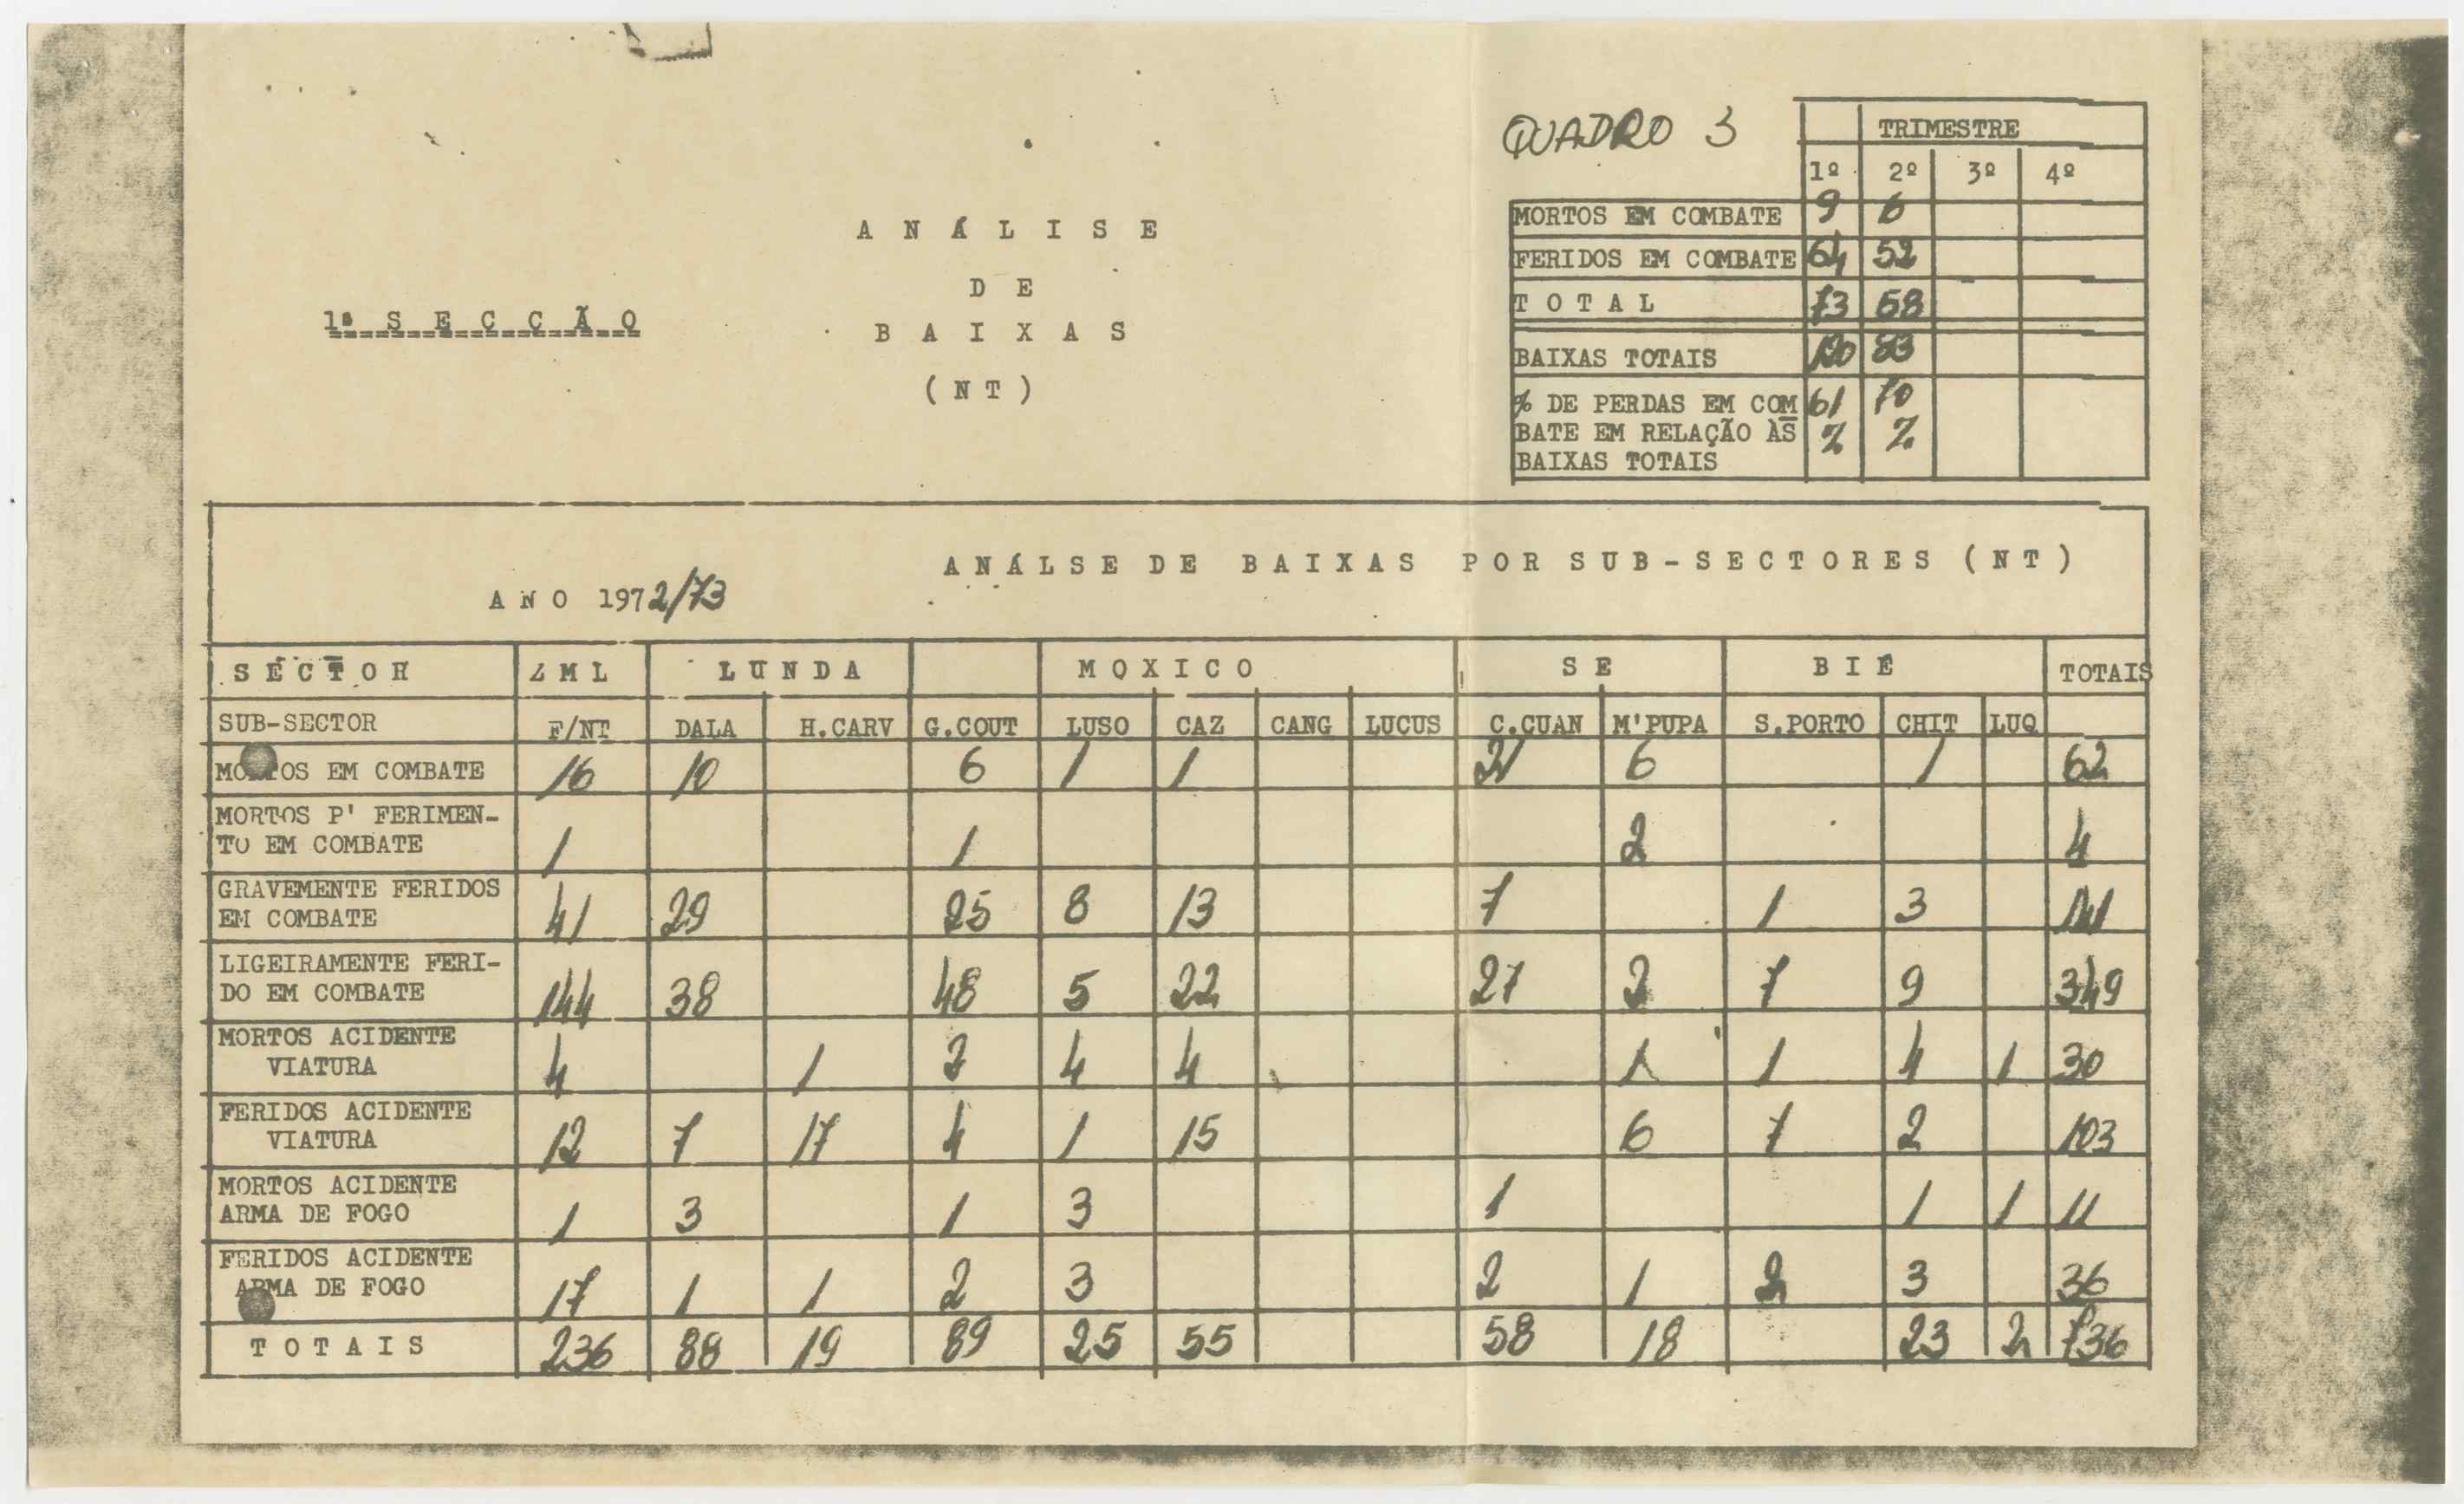 QUADRO 3
TRIMESTRE
1º 2º 3º 4º
MORTOS EM COMBATE 9 6
FERIDOS EM COMBATE 64 52
TOTAL 73 58
BAIXAS TOTAIS 120 83
% DE PERDAS EM COM 61 70
BATE EM RELAÇÃO ÀS % %
BAIXAS TOTAIS
ANÁLISE
DE
BAIXAS
(NT)
1ª SECÇÃO
ANÁLSE DE BAIXAS POR SUB-SECTORES (NT)
ANO 1972/73
SECTOR ZML LUNDA MOXICO SE BIÉ TOTAIS
SUB-SECTOR F/NT DALA H.CARV G.COUT LUSO CAZ CANG LUCUS C.CUAN M'PUPA S.PORTO CHIT LUQ
MORTOS EM COMBATE 16 10 6 1 1 21 6 1 62
MORTOS P' FERIMEN-
TO EM COMBATE 1 1 2 4
GRAVEMENTE FERIDOS
EM COMBATE 41 29 25 8 13 7 1 3 141
LIGEIRAMENTE FERI-
DO EM COMBATE 144 38 48 5 22 27 2 7 9 349
MORTOS ACIDENTE
VIATURA 4 1 2 4 4 1 1 4 1 30
FERIDOS ACIDENTE
VIATURA 12 7 17 4 1 15 6 7 2 103
MORTOS ACIDENTE
ARMA DE FOGO 1 3 1 3 1 1 1 11
FERIDOS ACIDENTE
ARMA DE FOGO 17 1 1 2 3 2 1 2 3 36
TOTAIS 236 88 19 89 25 55 58 18 23 2 736